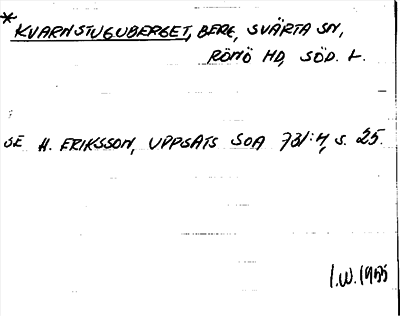 *KVARNSTUGUBERGET, BERG, SVÄRTA SN,
RÖNÖ HD, SÖD. L.
SE H. ERIKSSON, UPPSATS SOA 731:4, S. 25.
I.W. 1955